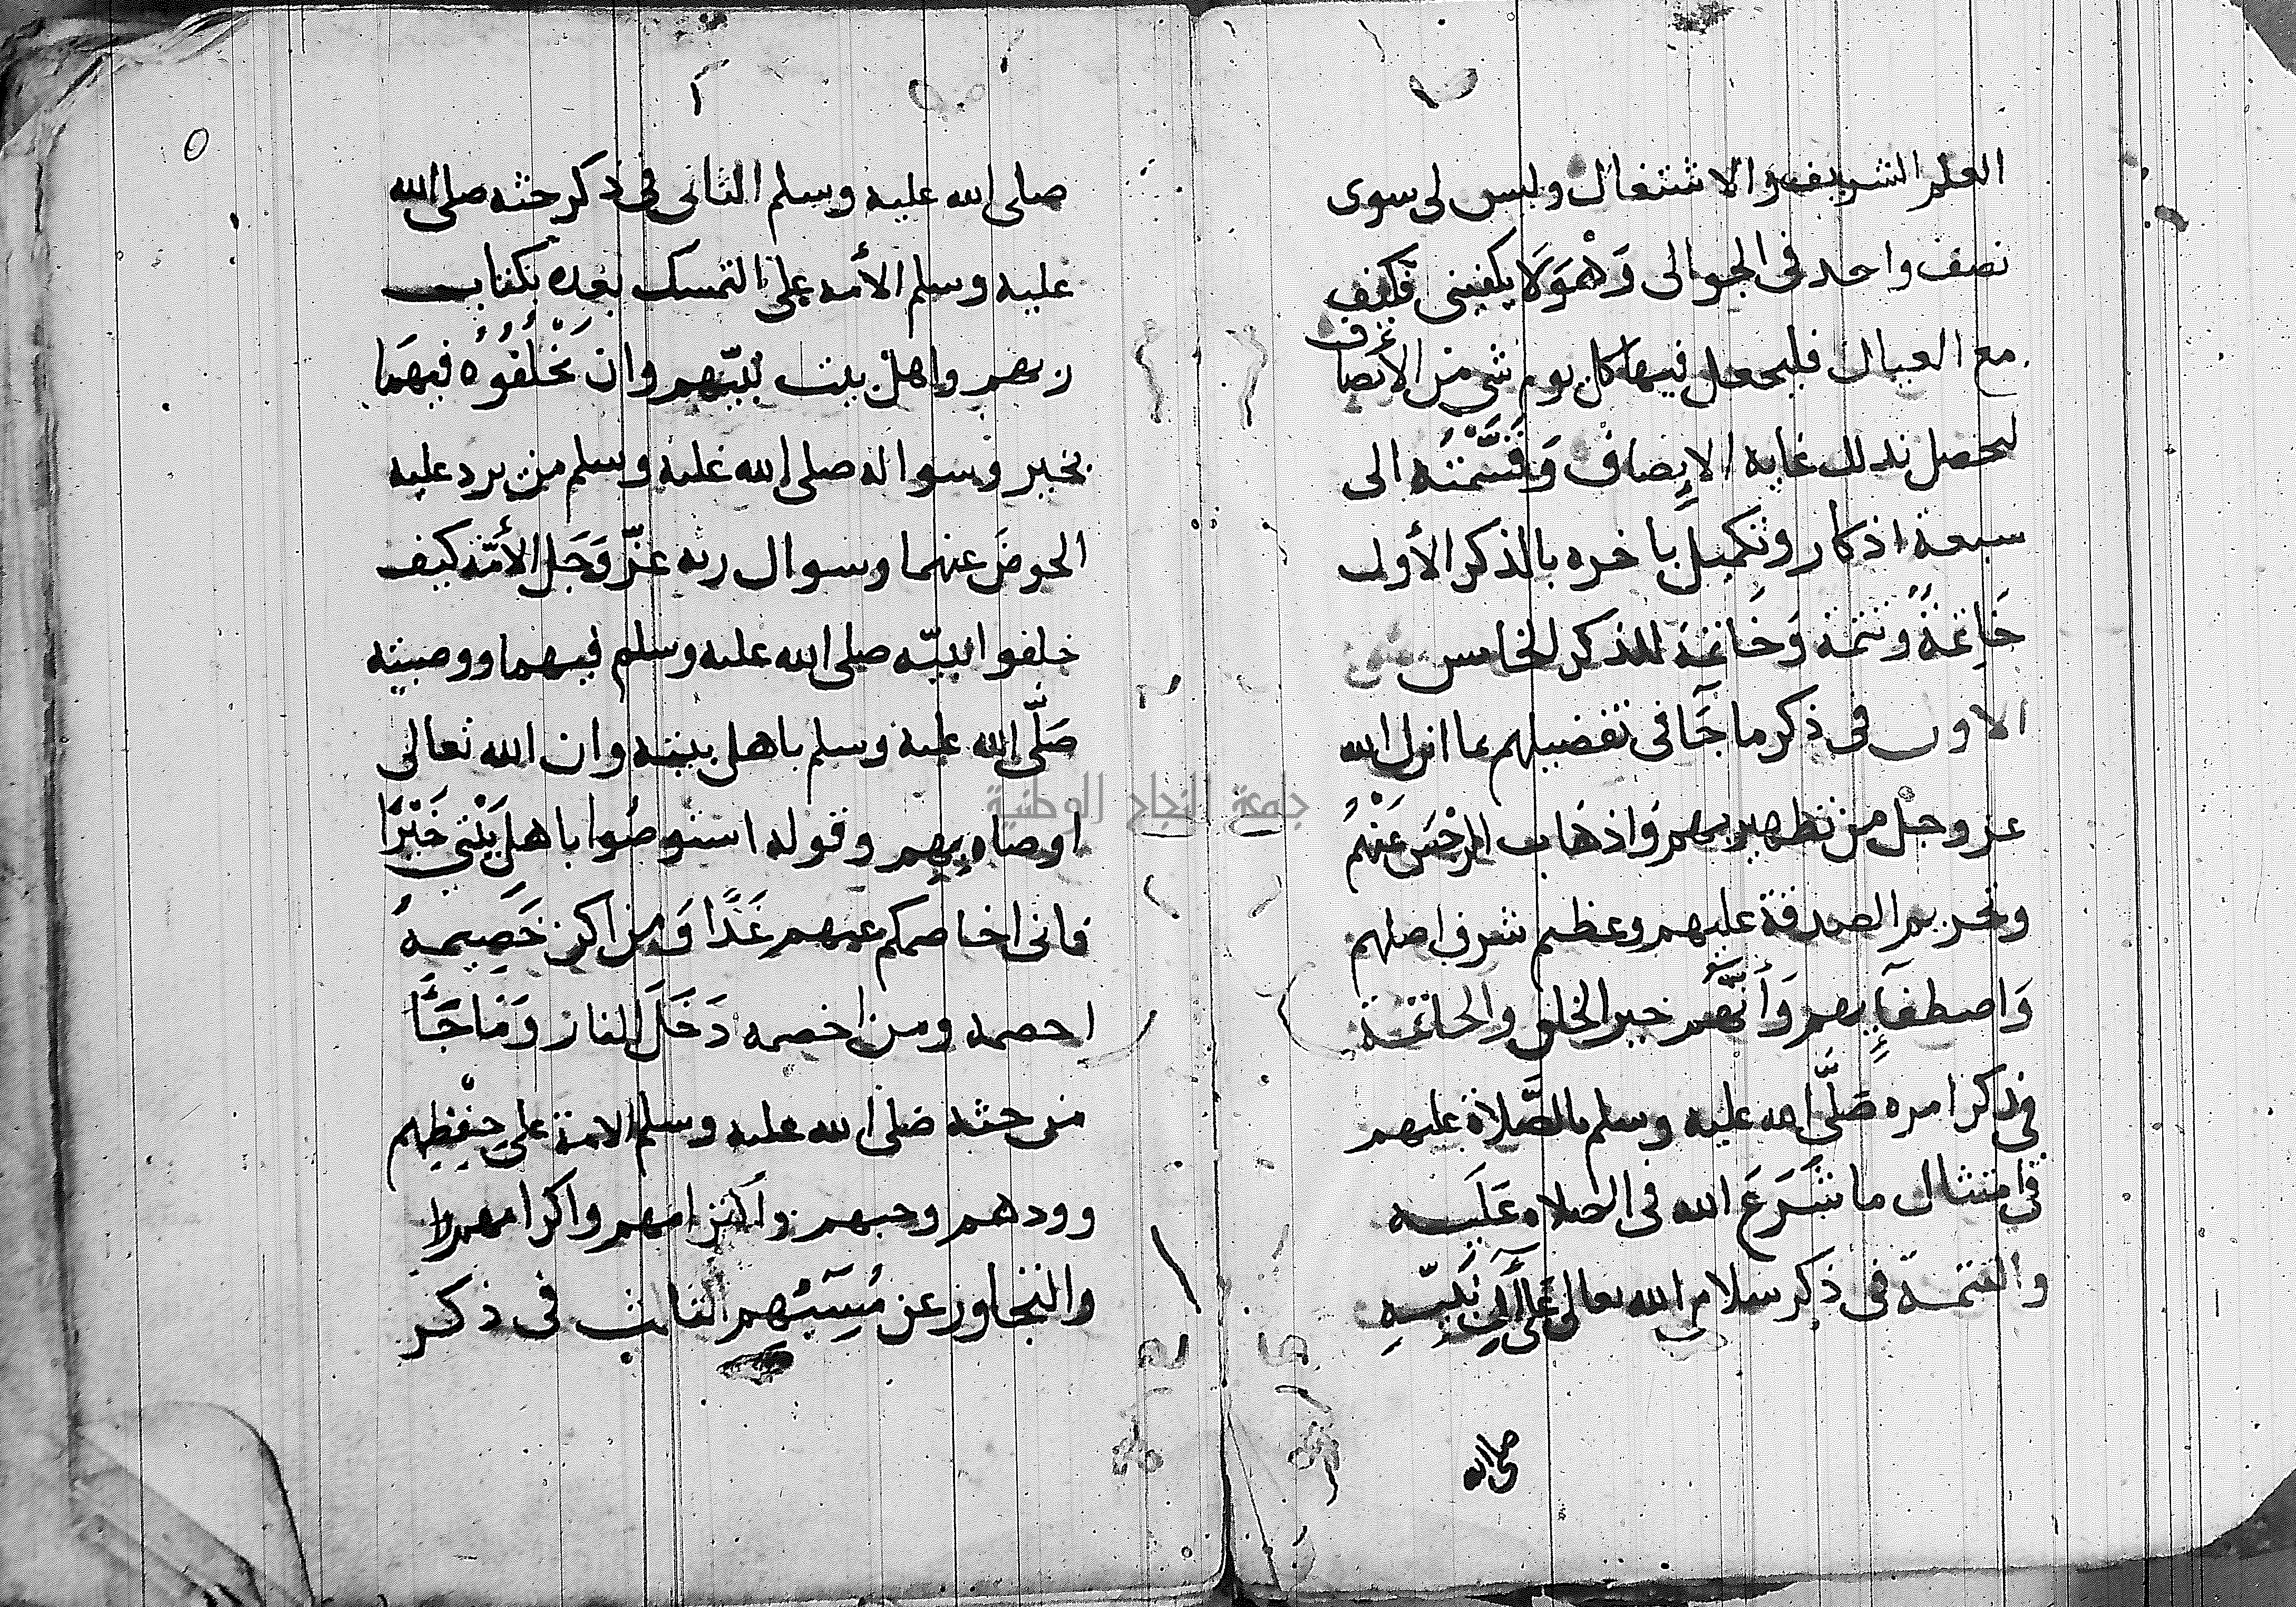 العلم الشريف والاشتغال وليس لى سوى
نصف واحد فى الجوالى وَهْوَ لَا يكفينى فكيف
مع العيال فليجعل فيها كل يوم شى من الأنصاف
ليحصل بذلك غاية الإنصاف وَقَسَّمْتُه الى
سبعة اذكار وتكميل بآخره بالذكر الأول
خَاتمةً وتتمة وَخَاتمة للذكر الخامس
الاول فى ذكر ما جَآ فى تفضيلهم بما انزل الله
عز وجل من تطهيرهم واذهاب الرجْسَ عَنْهُمْ
وتحريم الصدقة عليهم وعظيم شرف اصلهم
وَاصطفآئِهم وَأنَّهُم خير الخلق والخاتمة
فى ذكر امره صَلَّى الله عليه وسلم بالصَّلاة عليهم
فى امتثال ما شَرَعَ الله فى الصلاه عَلَيه
والتتمة فى ذكر سلام الله تعالى عَلَى آلِ نَبيّهِ
صلى الله
٥
صلى الله عليه وسلم الثانى فى ذكر حثه صلى الله
عليه وسلم الأمه على التمسك بعده بكتاب
ربهم واهل بيت نبيّهم وان يَخْلُفُوُه فيهَما
بخير وسواله صلى الله عليه وسلم من يرد عليه
الحوضَ عنهما وسوال ربه عَزّ وَجَل الأمّة كيف
خلفوا نبيّه صلى الله عليه وسلم فيهما ووصيته
صَلَّى الله عليه وسلم باهل بيته وان الله تعالى
اوصاه بِهِم وقوله استوصُوا باهل بَيْتى خَيْرًا
فانى اخاصمكم عنهم غَدًا وَمن اكن خَصِيمهُ
اخصمه ومن اخصمه دَخَلَ النار وَمَا جَآَ
من حثه صلى الله عليه وسلم الامة على حِفْظِهم
وودهم وحبهم واكرامهم
والتجاوز عن مُسِيئهم الثالث فى ذكر
جامعة النجاح الوطنية